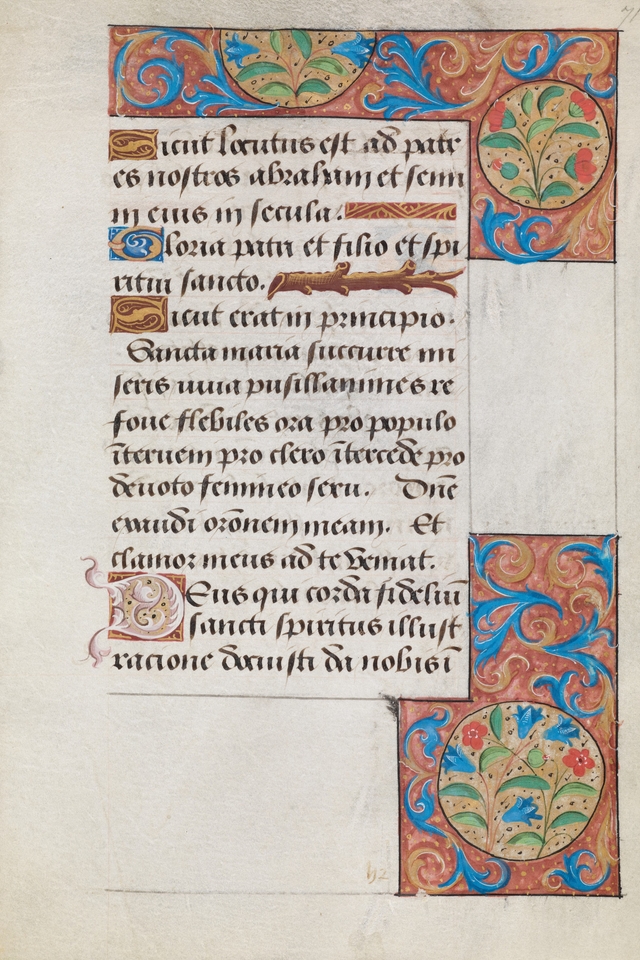 Sicut locutus est ad patr
es nostros abraham et semi
ni eius in secula.
Gloria patri et filio et spi
ritui sancto.
Sicut erat in principio.
Sancta maria succurre mi
seris iuua pusillanimes re
foue flebiles ora pro populo
īterueni pro clero ītercede pro
deuoto femineo sexu. Dn̄e
exaudi orōnem meam. Et
clamor meus ad te veniat.
Deus qui corda fideliū
sancti spiritus illust
racione docuisti da nobis ī